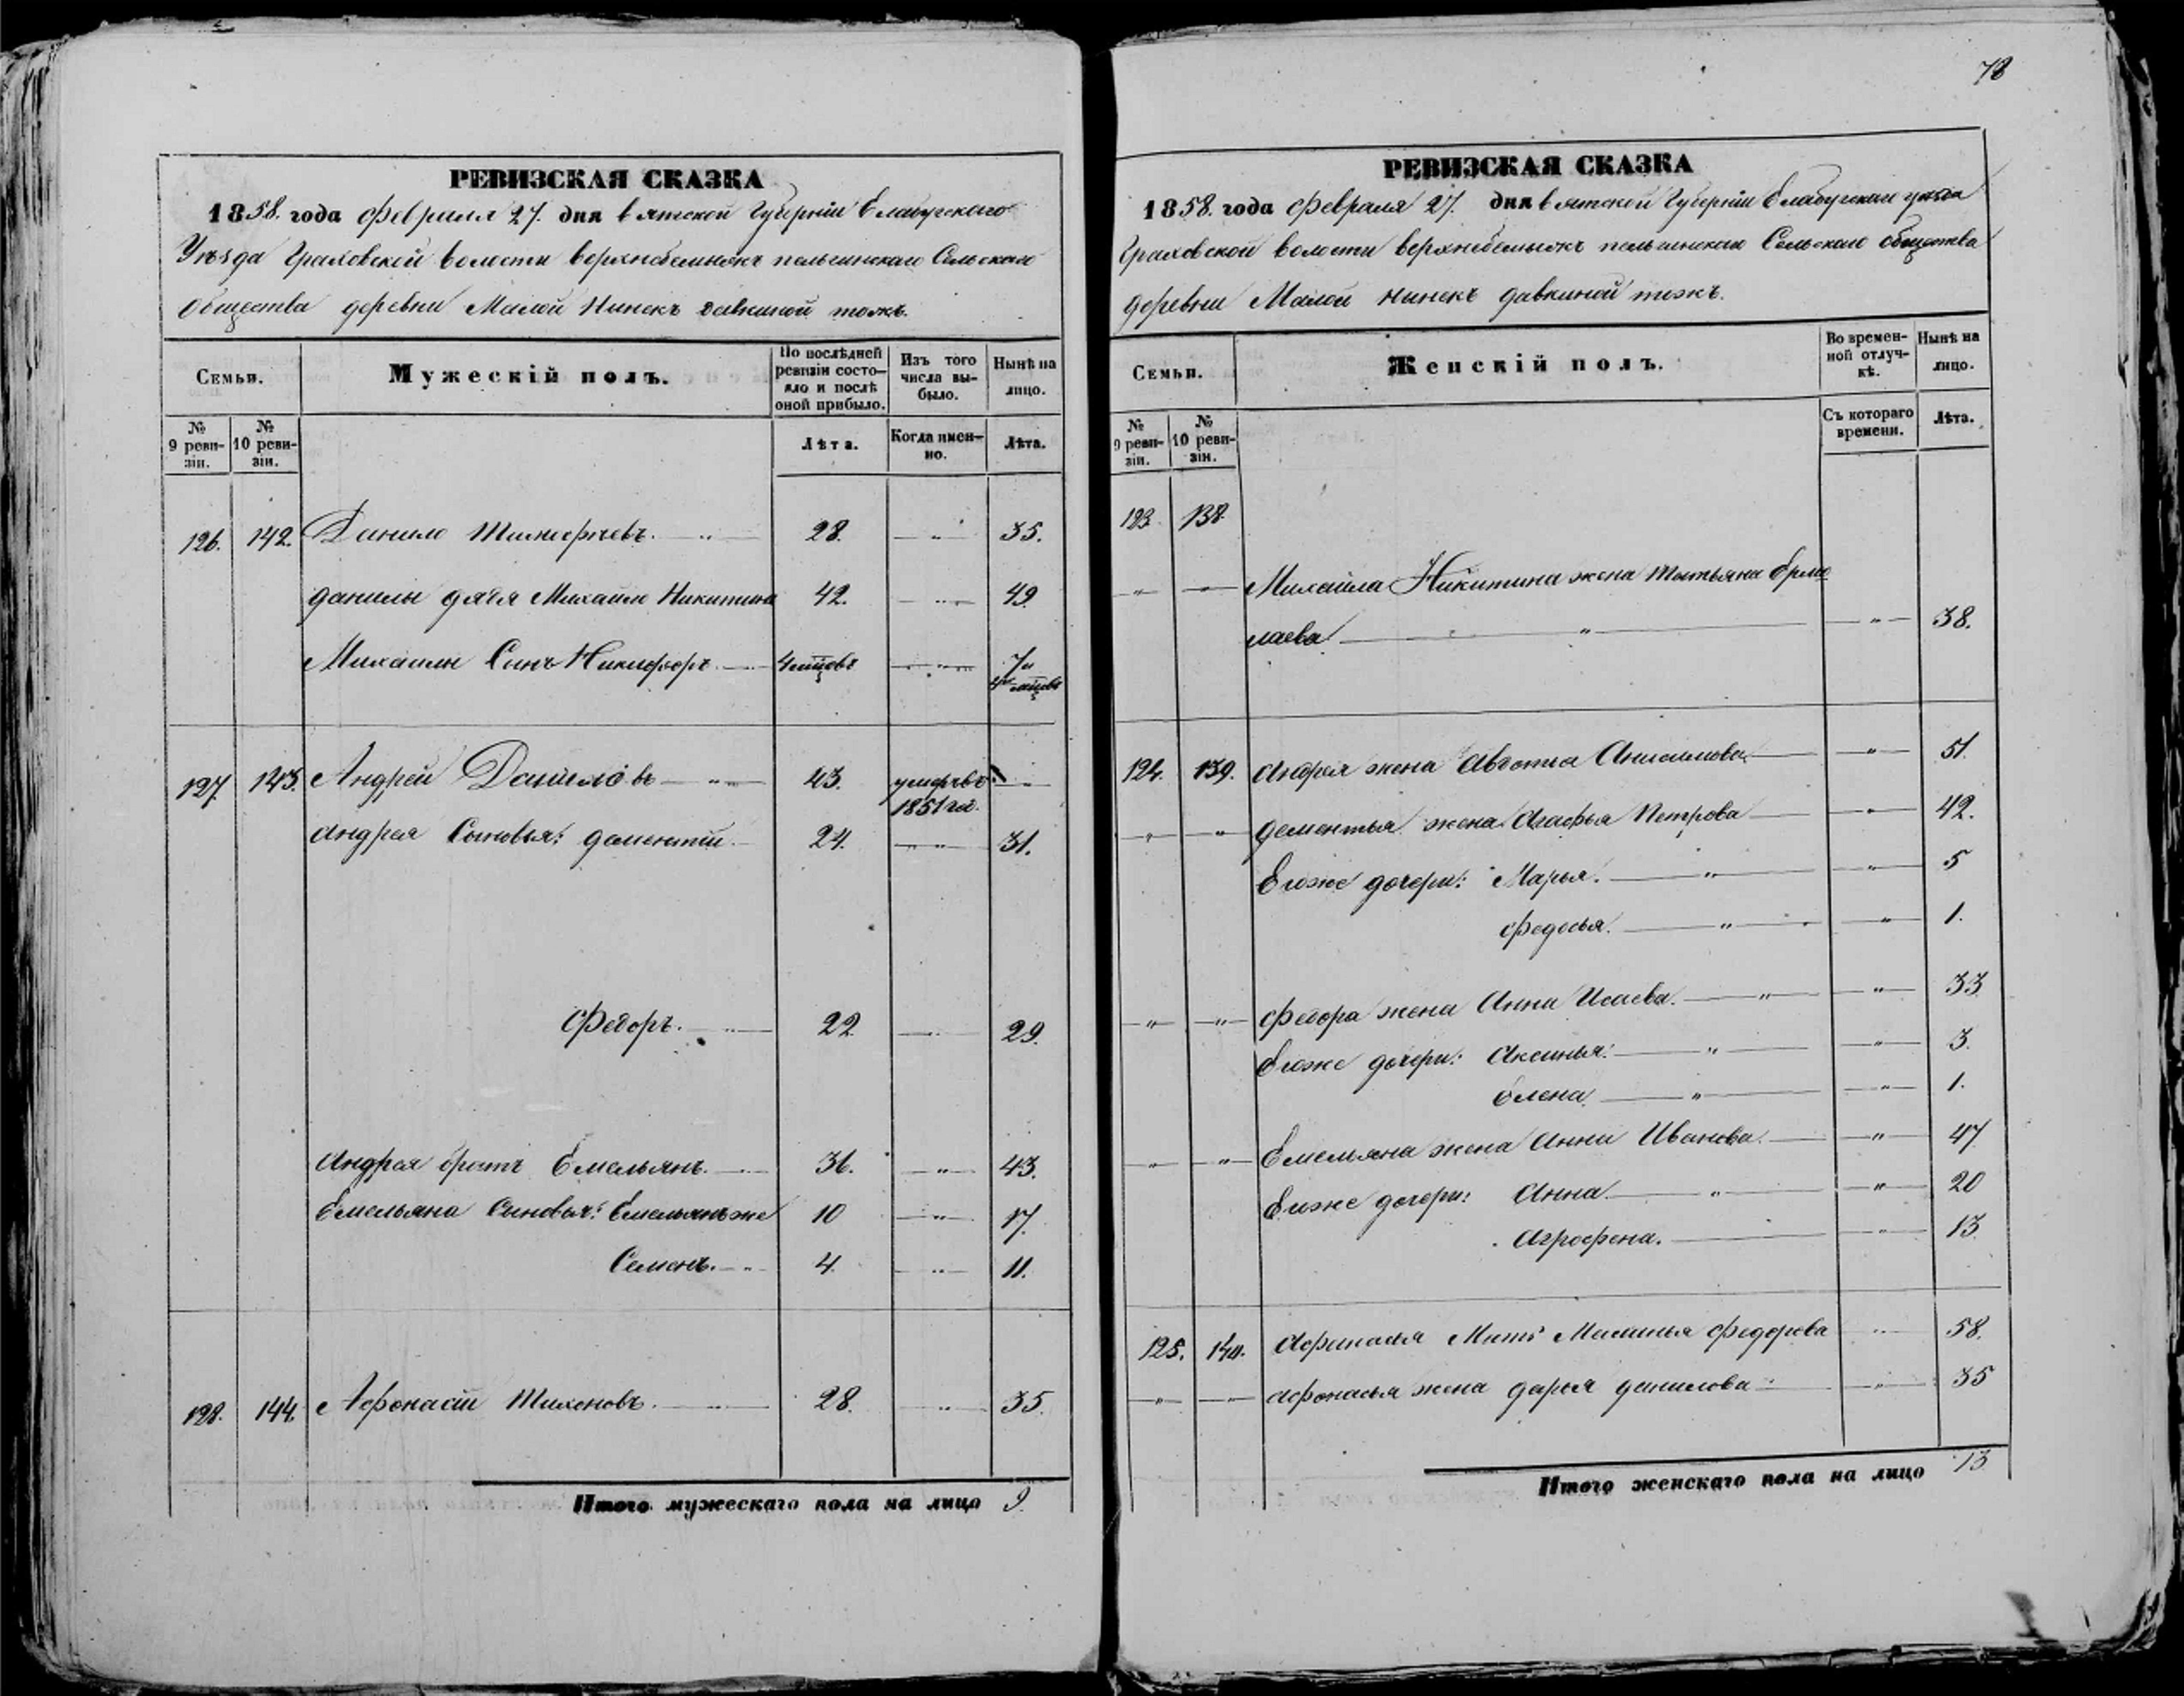 РЕВИЗСКАЯ СКАЗКА
1858. года Февраля 27. дня Вятской Губерніи Елабугскаго
Уѣзда Граховской волости верхнебемыжъ пельгинскаго Сельскаго
Общества деревни Малой Нинекъ Савкиной тожъ.
Семьи.
Мужескій полъ.
По послѣдней ревизіи состояло и послѣ оной прибыло.
Изъ того числа выбыло.
Нынѣ на лицо.
№ 9 ревизіи.
№ 10 ревизіи.
Лѣта.
Когда именно.
Лѣта.
126. 142. Данило 28. — " — 35.
данилы дядя Михайло Никитинъ 42. — " — 49.
Михайлы Сынъ Никифоръ 4 мцовъ — " — 7 и
мцовъ
127. 143. Андрей Даниловъ — " — 43. умеръ въ — " —
1851 год.
Андрея Сыновья: дементій. 24. — " — 31.
Федоръ. — 22. — 29.
Андрея братъ Емельянъ. — 36. — " — 43.
Емельяна Сыновья: Емельянъ же 10 — " — 17.
Семенъ. — " 4. — " — 11.
128. 144. Афонасій Тихоновъ. — 28. — " — 35.
Итого мужескаго пола на лицо 9.
78
РЕВИЗСКАЯ СКАЗКА
1858. года Февраля 27. дня Вятской Губерніи Елабугскаго уѣзда
Граховской волости верхнебемыжъ пельгинскаго Сельскаго общества
деревни Малой нинекъ савкиной тожъ.
Семьи.
Женскій полъ.
Во временной отлучкѣ.
Нынѣ на лицо.
№ 9 ревизіи.
№ 10 ревизіи.
Съ котораго времени.
Лѣта.
123. 138.
" — " — Михайла Никитина жена Татьяна Ермо
лаева — " — — " — 38.
124. 139. Андрея жена — " — 51.
" — " — дементья жена Агафья Петрова — " — 42.
Егоже дочери: Марья. — " — — " — 5
Федосья. — " — — " — 1.
" — " — Федора жена Анна Исаева. — " — — " — 33
Егоже дочери: Аксинья. — " — — " — 3.
Елена. — " — — " — 1.
" — " — Емельяна жена Анна Иванова. — — " — 47
Егоже дочери: Анна — " — — " — 20
Агрофена. — — " — 13
125. 140. Афонасья Мать Маланья Федорова " — 58.
" — " — Афонасья жена дарья данилова — " — 35
Итого женскаго пола на лицо 13